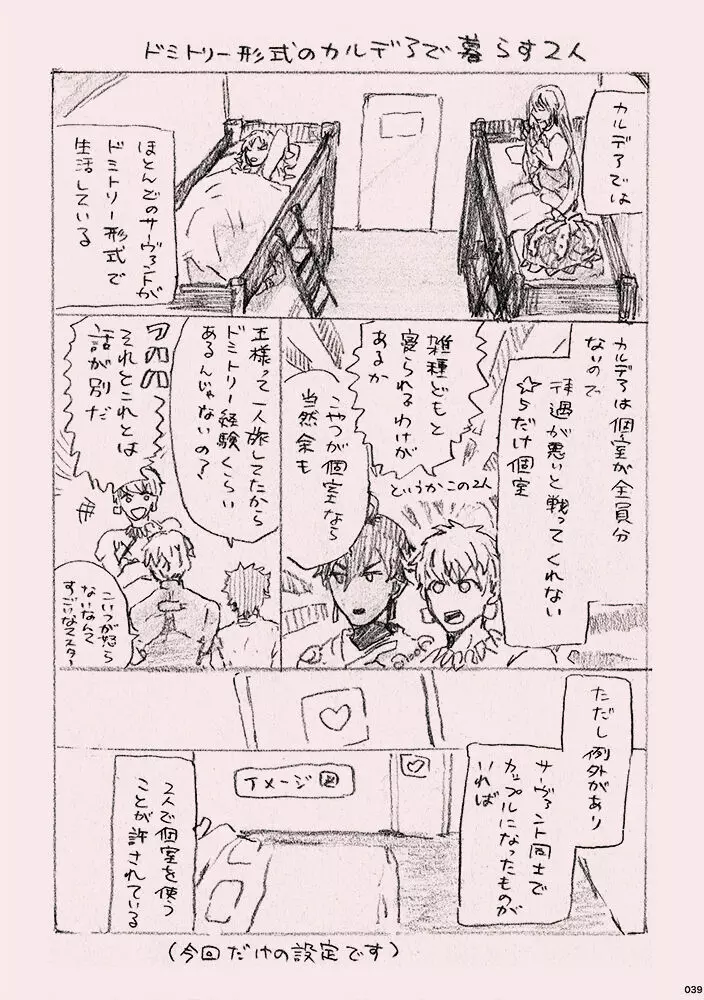 ドミトリー形式のカルデアで暮らす2人
カルデアでは
ほとんどのサーヴァントが
ドミトリー形式で
生活している
カルデアは個室が全員分
ないので
待遇が悪いと戦ってくれない
☆5だけ個室
雑種どもと
寝られるわけが
あるか
こやつが個室なら
当然余も
というかこの2人
王様って一人旅してたから
ドミトリー経験くらい
あるんじゃないの?
フハハハ
それとこれとは
話が別だ
こいつが怒ら
ないなんて
すごいなマスター
ただし例外があり
サーヴァント同士で
カップルになったものが
いれば
イメージ図
2人で個室を使う
ことが許されている
(今回だけの設定です)
039